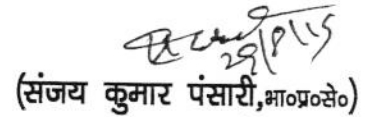 29/8/15
(संजय कुमार पंसारी,भा०प्र०से०)